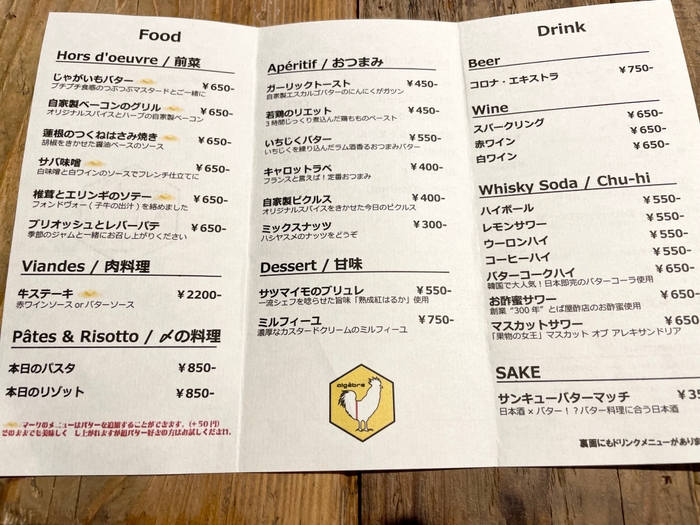 Food
Hors d'oeuvre / 前菜
じゃがいもバター ￥650-
プチプチ食感のつぶつぶマスタードとご一緒に
自家製ベーコンのグリル ￥650-
オリジナルスパイスとハーブの自家製ベーコン
蓮根のつくねはさみ焼き ￥650-
胡椒をきかせた醤油ベースのソース
サバ味噌 ￥650-
白味噌と白ワインのソースでフレンチ仕立てに
椎茸とエリンギのソテー ￥650-
フォンドヴォー（子牛の出汁）を絡めました
ブリオッシュとレバーパテ ￥650-
季節のジャムと一緒にお召し上がりください
Viandes / 肉料理
牛ステーキ ￥2200-
赤ワインソース orバターソース
Pâtes & Risotto / 〆の料理
本日のパスタ ￥850-
本日のリゾット ￥850-
マークのメニューはバターを追加することができます。(+50円)
そのままでも美味しく し上がれますが超バター好きの方はお試しください。
Apéritif / おつまみ
ガーリックトースト ￥450-
自家製エスカルゴバターのにんにくがガツン
若鶏のリエット ￥450-
3時間じっくり煮込んだ鶏もものペースト
いちじくバター ￥550-
いちじくを練り込んだラム酒香るおつまみバター
キャロットラペ ￥400-
フランスと言えば！定番おつまみ
自家製ピクルス ￥400-
オリジナルスパイスをきかせた今日のピクルス
ミックスナッツ ￥300-
ハシヤスメのナッツをどうぞ
Dessert / 甘味
サツマイモのブリュレ ￥550-
一流シェフを唸らせた旨味「熟成紅はるか」使用
ミルフィーユ ￥750-
濃厚なカスタードクリームのミルフィーユ
algèbre
Drink
Beer
コロナ・エキストラ ￥750-
Wine
スパークリング ￥650-
赤ワイン ￥650-
白ワイン ￥650-
Whisky Soda / Chu-hi
ハイボール ￥550-
レモンサワー ￥550-
ウーロンハイ ￥550-
コーヒーハイ ￥550-
バターコークハイ ￥650-
韓国で大人気！日本即完のバターコーラ使用
お酢蜜サワー ￥650-
創業 "300 年" とば屋酢店のお酢蜜使用
マスカットサワー ￥650
「果物の女王」マスカット オブ アレキサンドリア
SAKE
サンキューバターマッチ ￥35
日本酒 × バター！？バター料理に合う日本酒
裏面にもドリンクメニューがありま